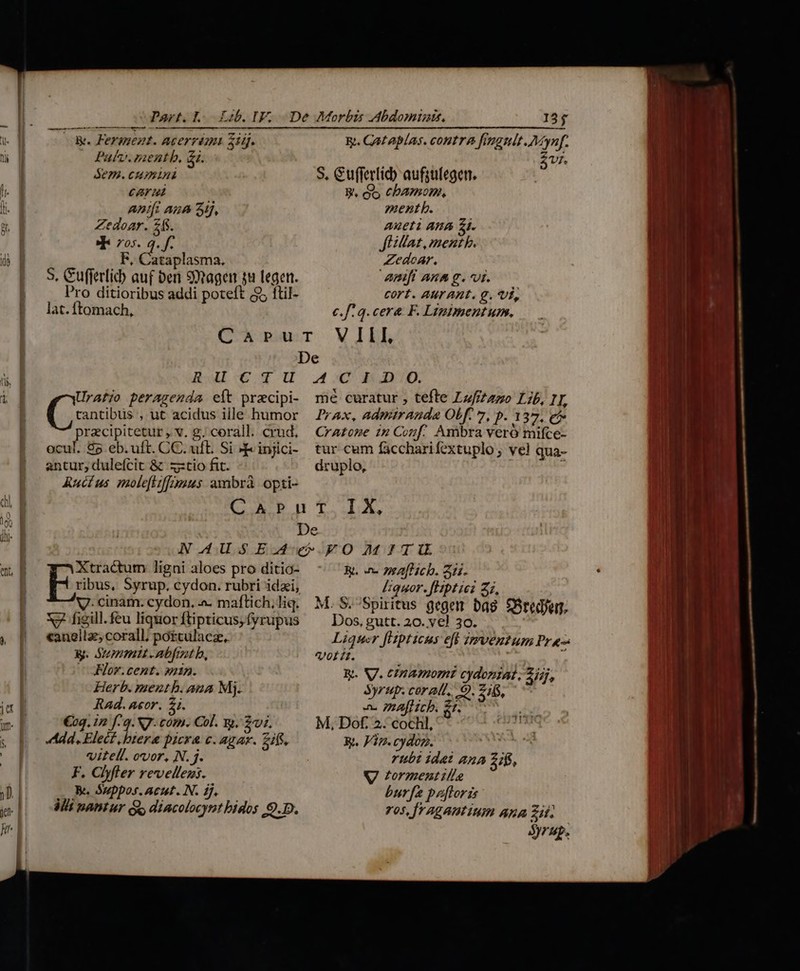 Part. I. Lib. IV. De Morbis Abdominis. 135
℞. Ferment. acerrimi ℥iij.
Pulv. menth. ℥i.
Sem. cumini
carui
anisi ana ʒij,
Zedoar. ℥ß.
ros. q. s.
F. Cataplasma.
S. Eusserlich auf den Magen zu legen.
Pro ditioribus addi potest stil-
lat. stomach,
℞. Cataplas. contra singult. Myns.
℥vi.
S. Eusserlich aufzulegen.
℞. chamom,
menth.
aneti ana ℥i.
stillat, menth.
Zedoar.
anisi ana g. vi.
cort. aurant. g. vi,
c. s. q. cera F. Linimentum.
CAPUT VIII,
De
RUCTU ACIDO.
CUratio peragenda est præcipi-
tantibus, ut acidus ille humor
præcipitetur, v. g. corall. crud.
ocul. 69 eb. ust. CC. ust. Si injici-
antur, dulescit & tio fit.
Ructus molestissimus ambrâ opti-
mè curatur, teste Lusitano Lib. II,
Prax. admiranda Obs. 7. p. 137. &
Cratone in Conf. Ambra verò misce-
tur cum sacchari sextuplo, vel qua-
druplo,
CAPUT IX,
De
NAUSEA & VOMITU
EXtractum ligni aloes pro ditio-
ribus, Syrup. cydon. rubri idæi,
🜄. cinam. cydon. mastich, liq.
sigill. seu liquor stipticus, syrupus
canellæ, corall. portulacæ,
℞. Summit. absinth,
Flor. cent. min.
Herb. menth. ana Mj.
Rad. acor. ℥i.
Coq. in s. q. 🜄. com. Col. ℞. ℥vi.
Add. Elect. hiera picra c. agar. ℥iß,
vitell. ovor. N. j.
F. Clyster revellens.
℞. Suppos. acut. N. ij.
illinantur diacolocynthidos Q. D.
℞. mastich. ʒii.
liquor. stiptici ʒi,
M. S. Spiritus gegen das Brechen.
Dos, gutt. 20. vel 30.
Liquor stipticus est inventum Præ-
votii.
℞. 🜄. cinamomi cydoniat. ℥iij,
Syrup. corall. Q. ℥iß,
mastich. ʒi.
M, Dos. 2. cochl,
℞. Vin. cydon.
rubi idæi ana ℥iß,
🜄 tormentilla
bursæ pastoris
ros. fragantium ana ℥ii.
Syrup.